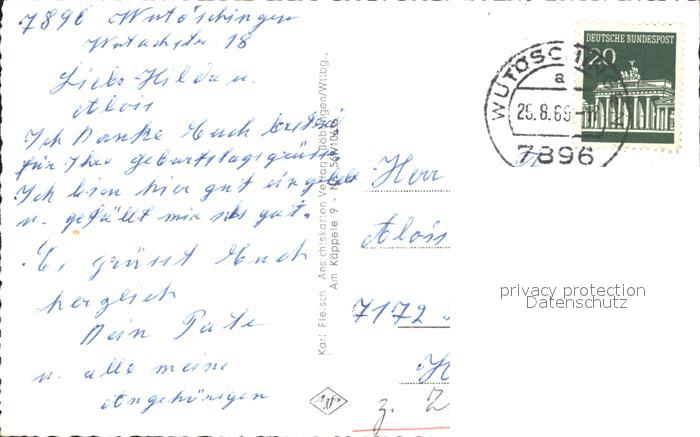 7896 Wutöschingen
Wutachstr. 18
Liebe Hilda u.
Alois
Ich Danke Euch
für Ihre Geburtstagsgrüße
Ich bin hier gut
u. gefällt mir sehr gut.
Es grüsst Euch
herzlich
Dein Pate
u. alle meine
Angehörigen
Karl Fleisch Ansichtskarten-Verlag Böblingen/Wttbg.,
Am Käppele 9 -
DEUTSCHE BUNDESPOST
20
WUTÖSCHINGEN
a
25.8.69
7896
Herr
Alois
7172
z. Z
privacy protection
Datenschutz